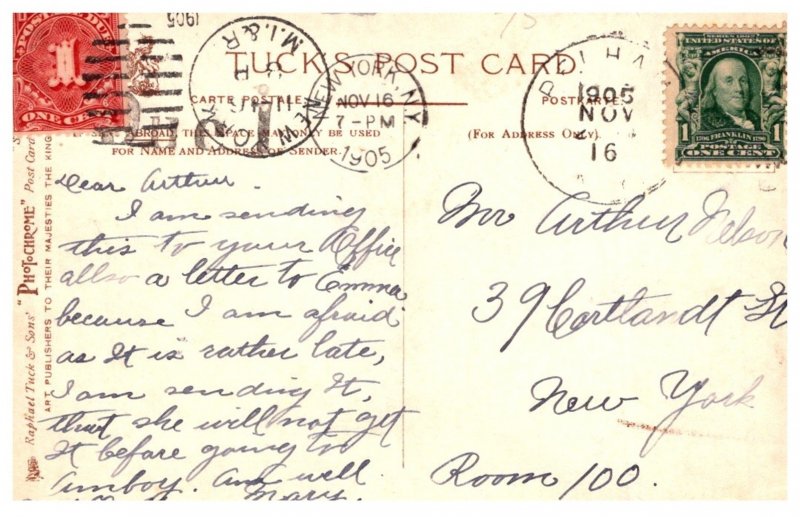 1905
POSTAGE DUE
1
ONE CENT
M.I.& R
NEW YORK, NY
NOV 16
7-PM
1905
1905
NOV
16
SERIES 1902
UNITED STATES OF
AMERICA
1 1
FRANKLIN
POSTAGE
ONE CENT
TUCK'S POST CARD.
CARTE POSTALE
POSTKARTE
ABROAD, THIS SPACE MAY ONLY BE USED
FOR NAME AND ADDRESS OF SENDER.
(FOR ADDRESS ONLY).
Raphael Tuck & Sons' "PHOTOCHROME" Post Card
ART PUBLISHERS TO THEIR MAJESTIES THE KING
Dear Arthur.
I am sending
this to your Office
allso a letter to Emma
because I am afraid
as It is rather late,
I am sending It,
that she will not get
It before going to
Amboy. Am well.
Mary.
Mr Arthur Nelson
39 Cortlandt St
New York
Room 100.